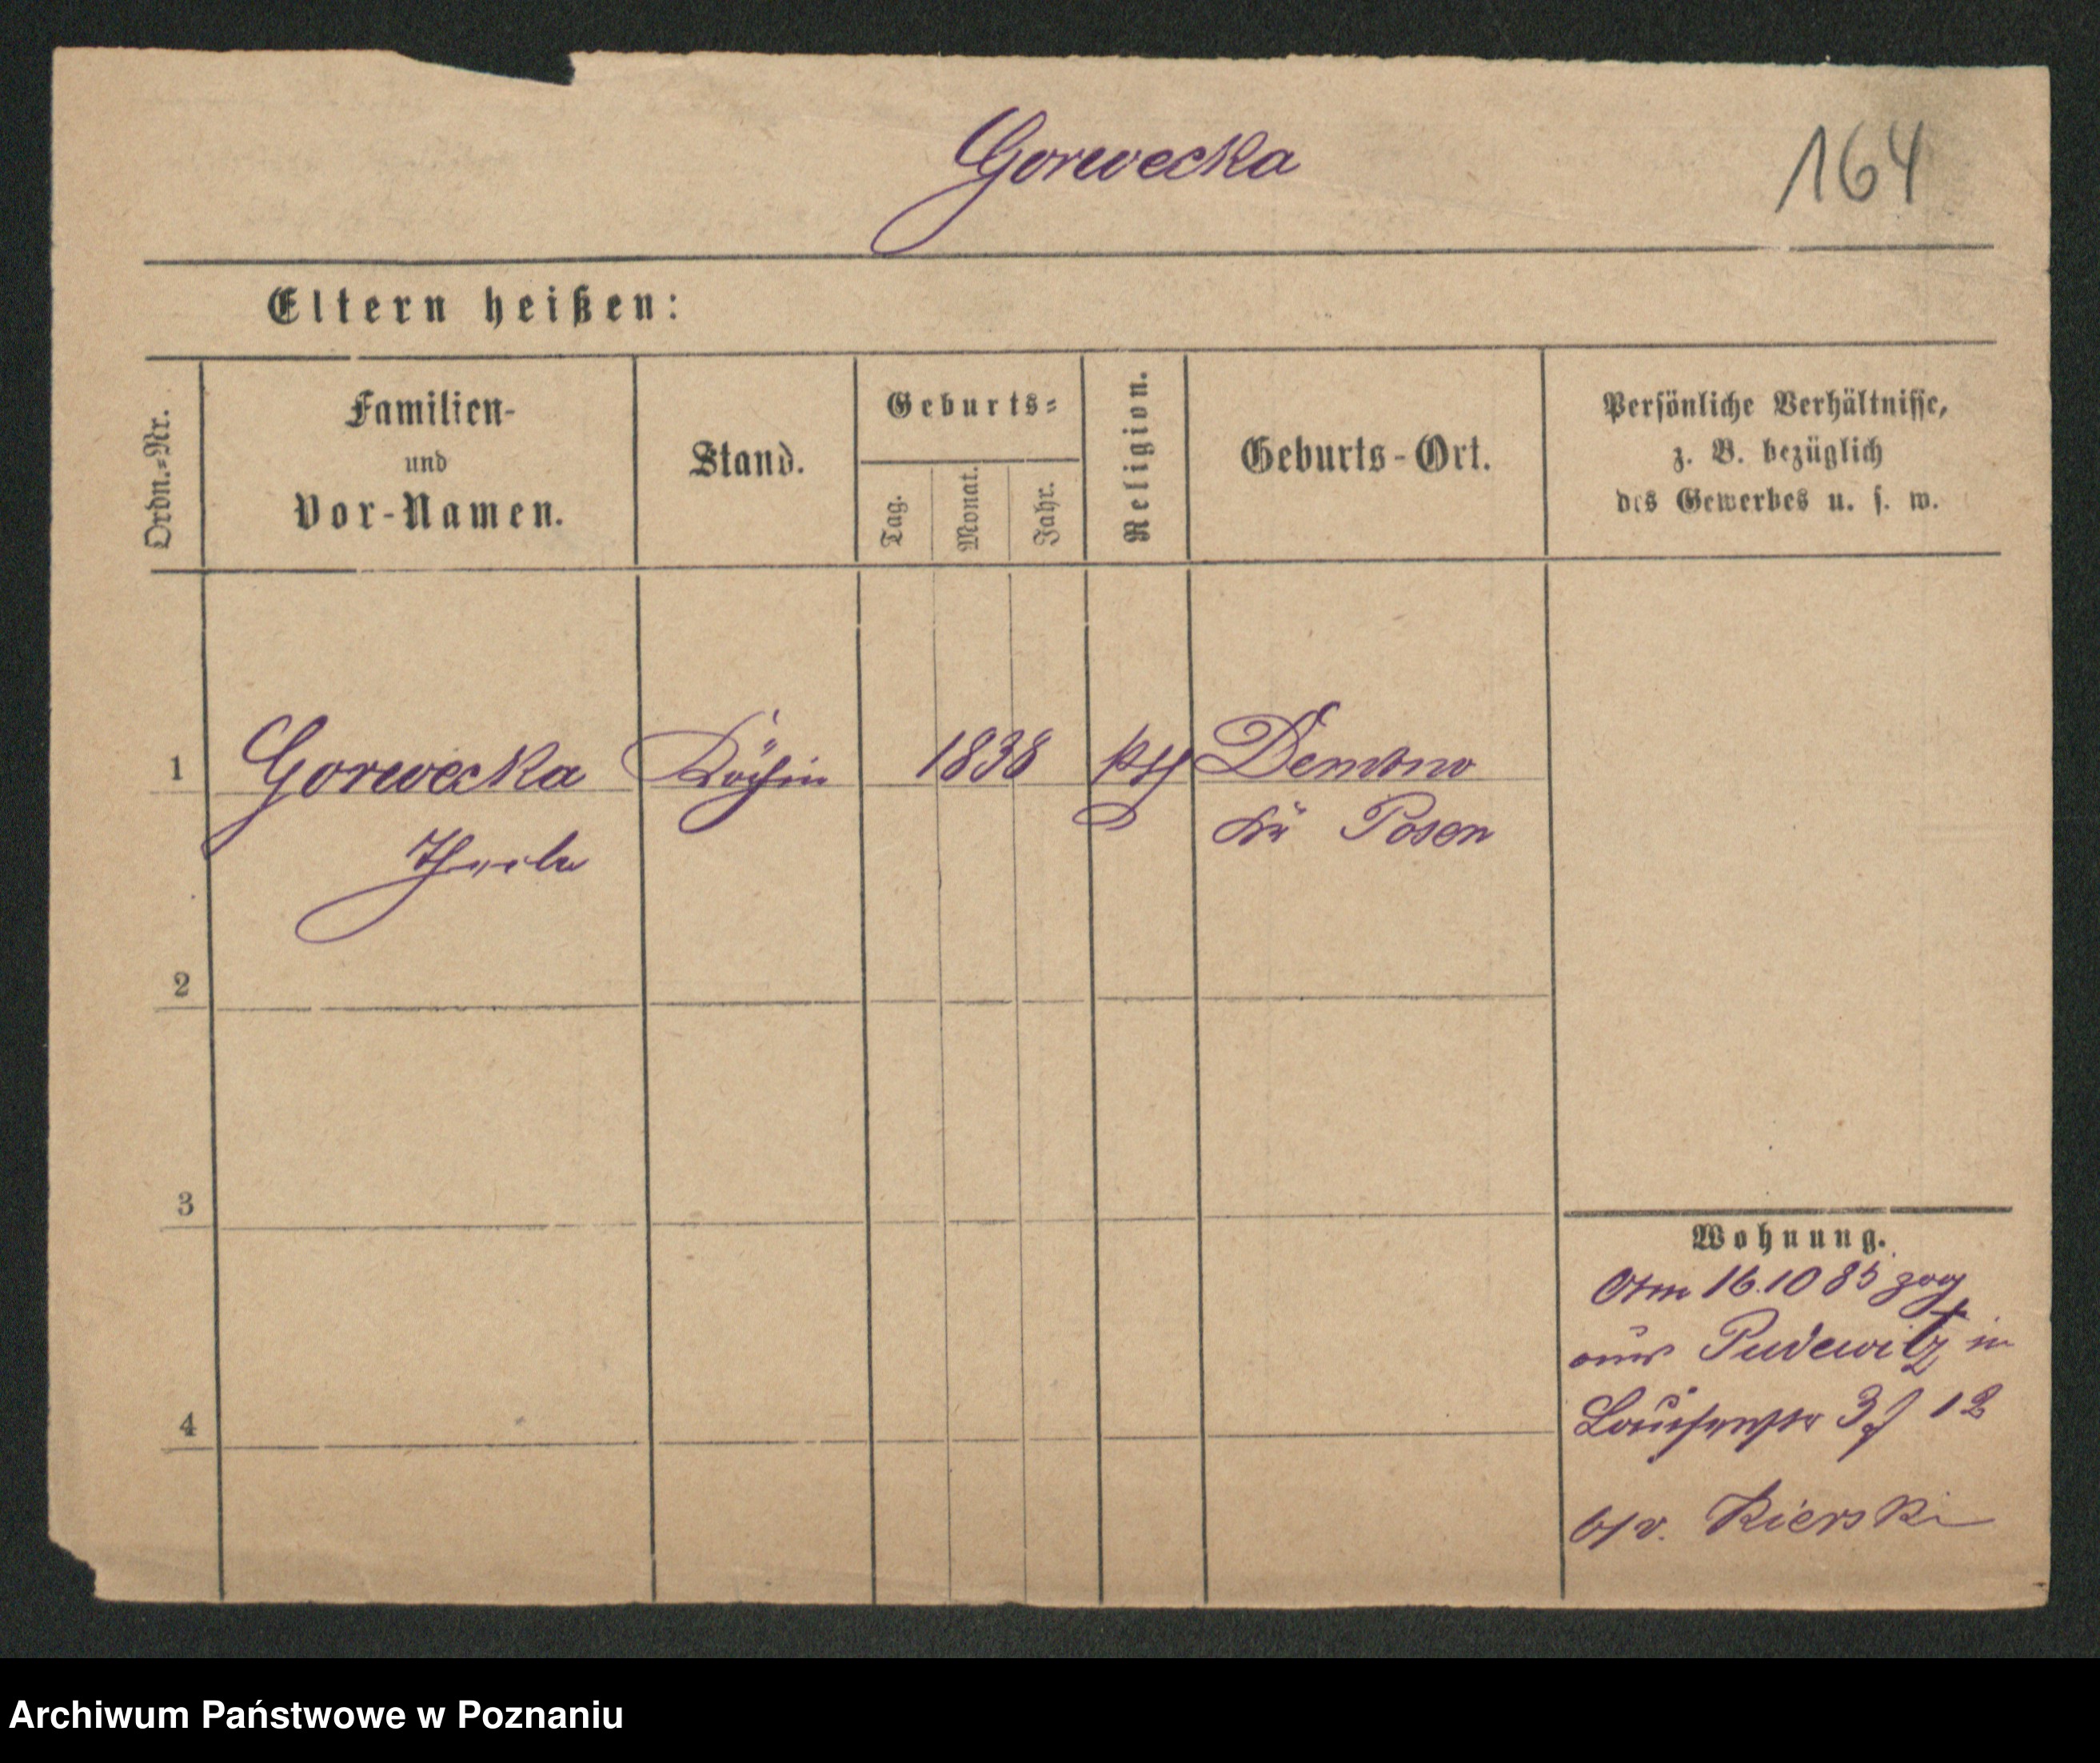 Gorwecka
164
Eltern heißen:
Ordn.=Nr.
Familien-
und
Vor-Namen.
Stand.
Geburts=
Tag.
Monat.
Jahr.
Religion.
Geburts-Ort.
Persönliche Verhältnisse,
z. B. bezüglich
des Gewerbes u. s. w.
1 Gorwecka Köchin 1838 kth Dembno
Kr Posen
Thecla
2
3
4
Wohnung.
Am 16.10 85 zog
aus Pudewitz in
Louisenstr 12
Kierski
Archiwum Państwowe w Poznaniu